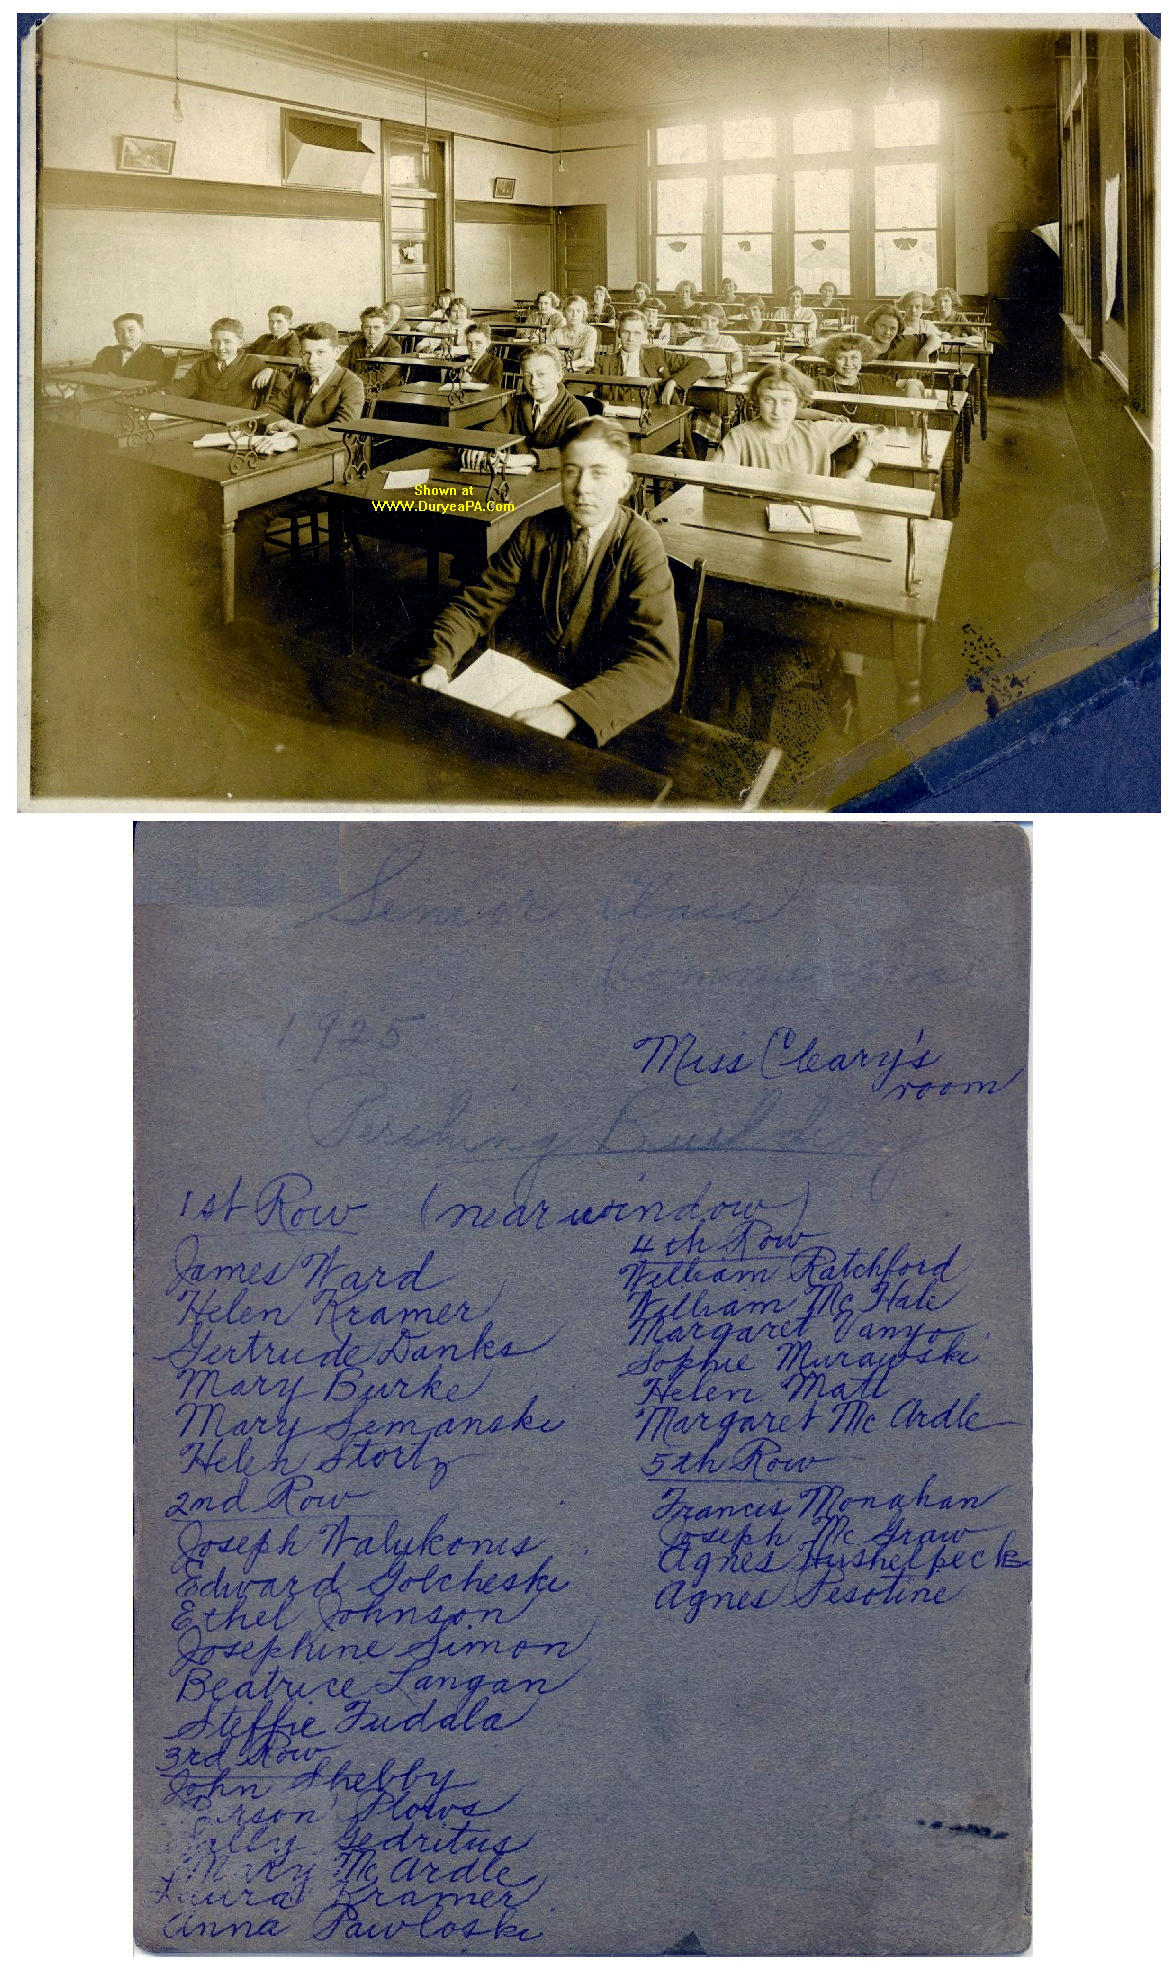 Shown at
WWW.DuryeaPA.Com
Senior Class
1925
Miss Cleary's
room
Pershing Building
1st Row (near window)
James Ward
Helen Kramer
Gertrude Danks
Mary Burke
Mary Semanski
Helen Stortz
2nd Row
Joseph Walukonis
Edward Golcheski
Ethel Johnson
Josephine Simon
Beatrice Langan
Steffie Fudala
3rd Row
John Shebby
Plows
Gedritus
Mary McArdle
Laura Kramer
Anna Pawloski
4th Row
William Ratchford
William McHale
Margaret Vanyo
Sophie Murawski
Helen Matl
Margaret McArdle
5th Row
Francis Monahan
Joseph McGraw
Agnes Hushelpeck
Agnes Sesotine